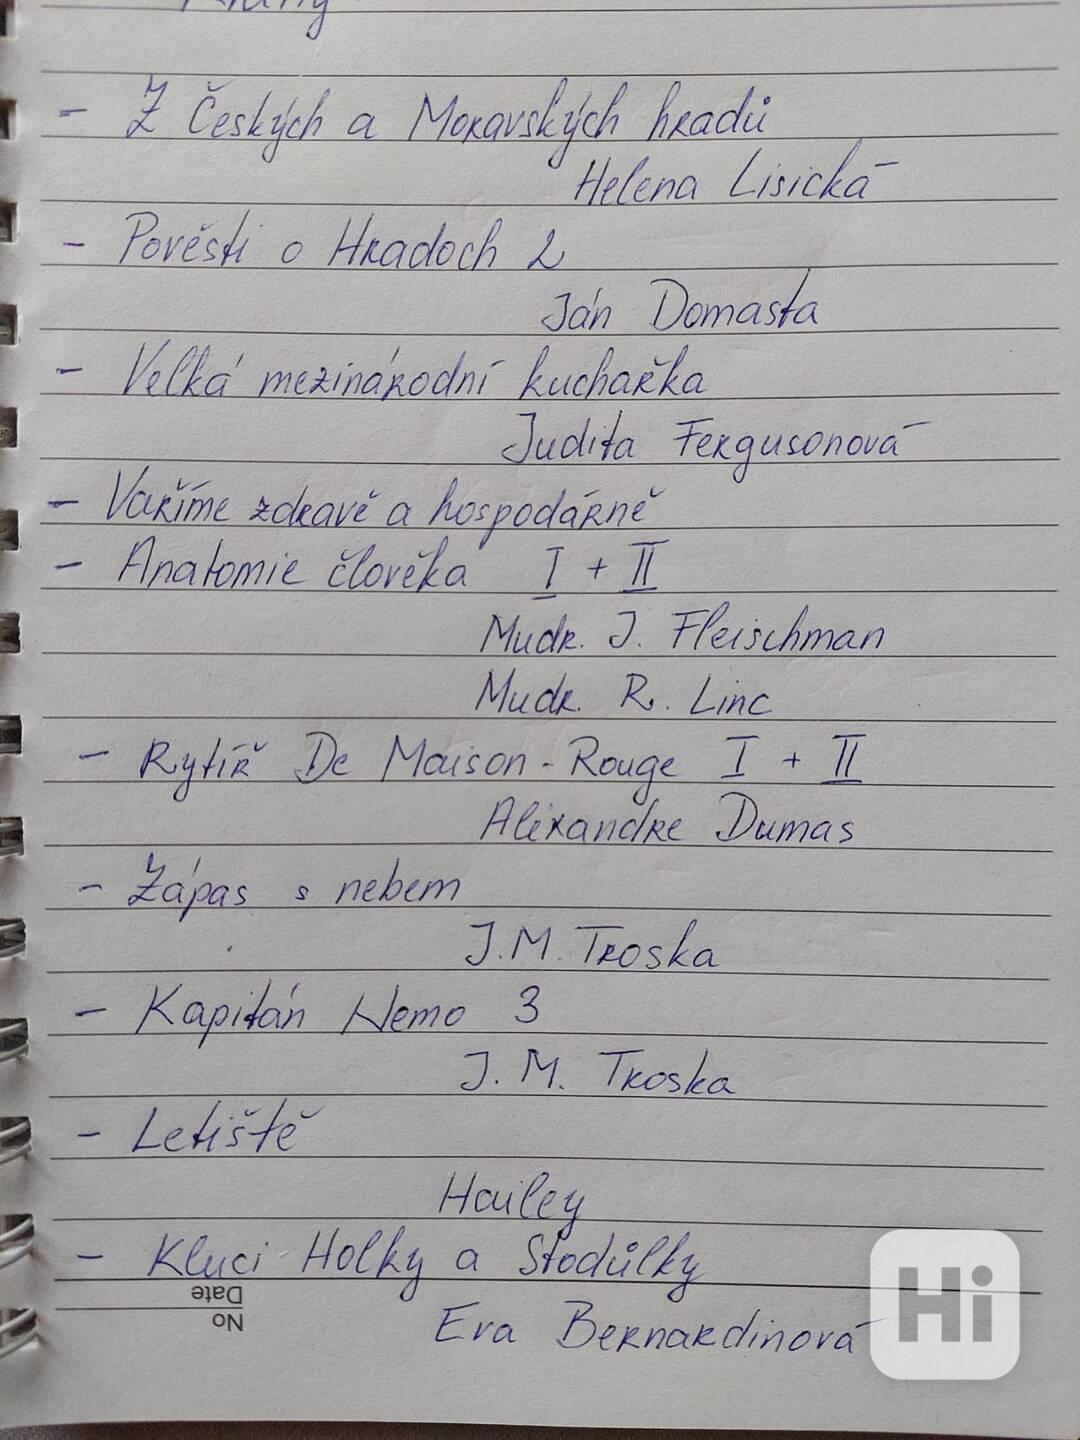 - Z Českých a Moravských hradů
Helena Lisická
- Pověsti o Hradoch 2
Ján Domasta
- Velká mezinárodní kuchařka
Judita Fergusonová
- Vaříme zdravě a hospodárně
- Anatomie člověka I + II
Mudr. J. Fleischman
Mudr. R. Linc
- Rytíř De Maison-Rouge I + II
Alexandre Dumas
- Zápas s nebem
J.M. Troska
- Kapitán Nemo 3
J. M. Troska
- Letiště
Hailey
- Kluci Holky a Stodůlky
No
Date
Eva Bernardinová
Hi